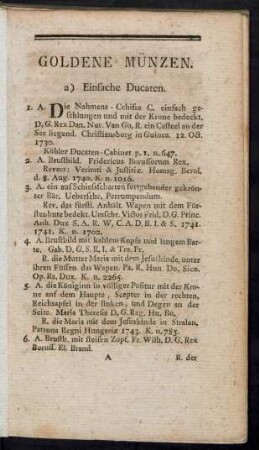 GOLDENE MÜNZEN.
a) Einfache Ducaten.
1. A. Die Nahmens-Chifre C. einfach ge-
schlungen und mit der Krone bedeckt.
D. G. Rex Dan. Nor. Van Go, R. ein Casteel an der
See liegend. Christiansburg in Guinea. 12. Oct.
1730.
Köhler Ducaten-Cabinet p. 1. n. 647.
2. A. Brustbild. Fridericus Borussorum Rex.
Revers: Veritati & Justitiæ. Homag. Berol.
d. 8. Aug. 1740. K. n. 1016.
3. A. ein auf Schießscharten fortgehender gekrön-
ter Bär. Ueberschr. Perrumpendum.
Rev. das fürstl. Anhält. Wapen mit dem Für-
stenhute bedekt. Umschr. Victor Frid, D. G. Princ.
Anh. Dux S. A. E. W, C. A. D. B. I. & S. 1741.
1741. K. n. 1702.
4. A. Brustbild mit kahlem Kopfe und langem Bar-
te. Gab. D, G. S. R, I. & Tra. Pr.
R. die Mutter Maria mit dem Jesuskinde, unter
ihren Füssen das Wapen. Pa, R. Hun. Do, Sico.
Op. Ra. Dux. K. n. 2265.
5. A. die Königinn in völliger Positur mit der Kro-
ne auf dem Haupte, Scepter in der rechten,
Reichsapfel in der linken, und Degen an der
Seite. Maria Theresia D, G. Reg. Hu. Bo,
R. die Maria mit dem Jesuskinde in Stralen.
Patrona Regni Hungariæ 1743. K. n. 785.
6. A. Brustb. mit steifen Zopf. Fr. Wilh. D. G, Rex
Boruss. El. Brand.
A R. der